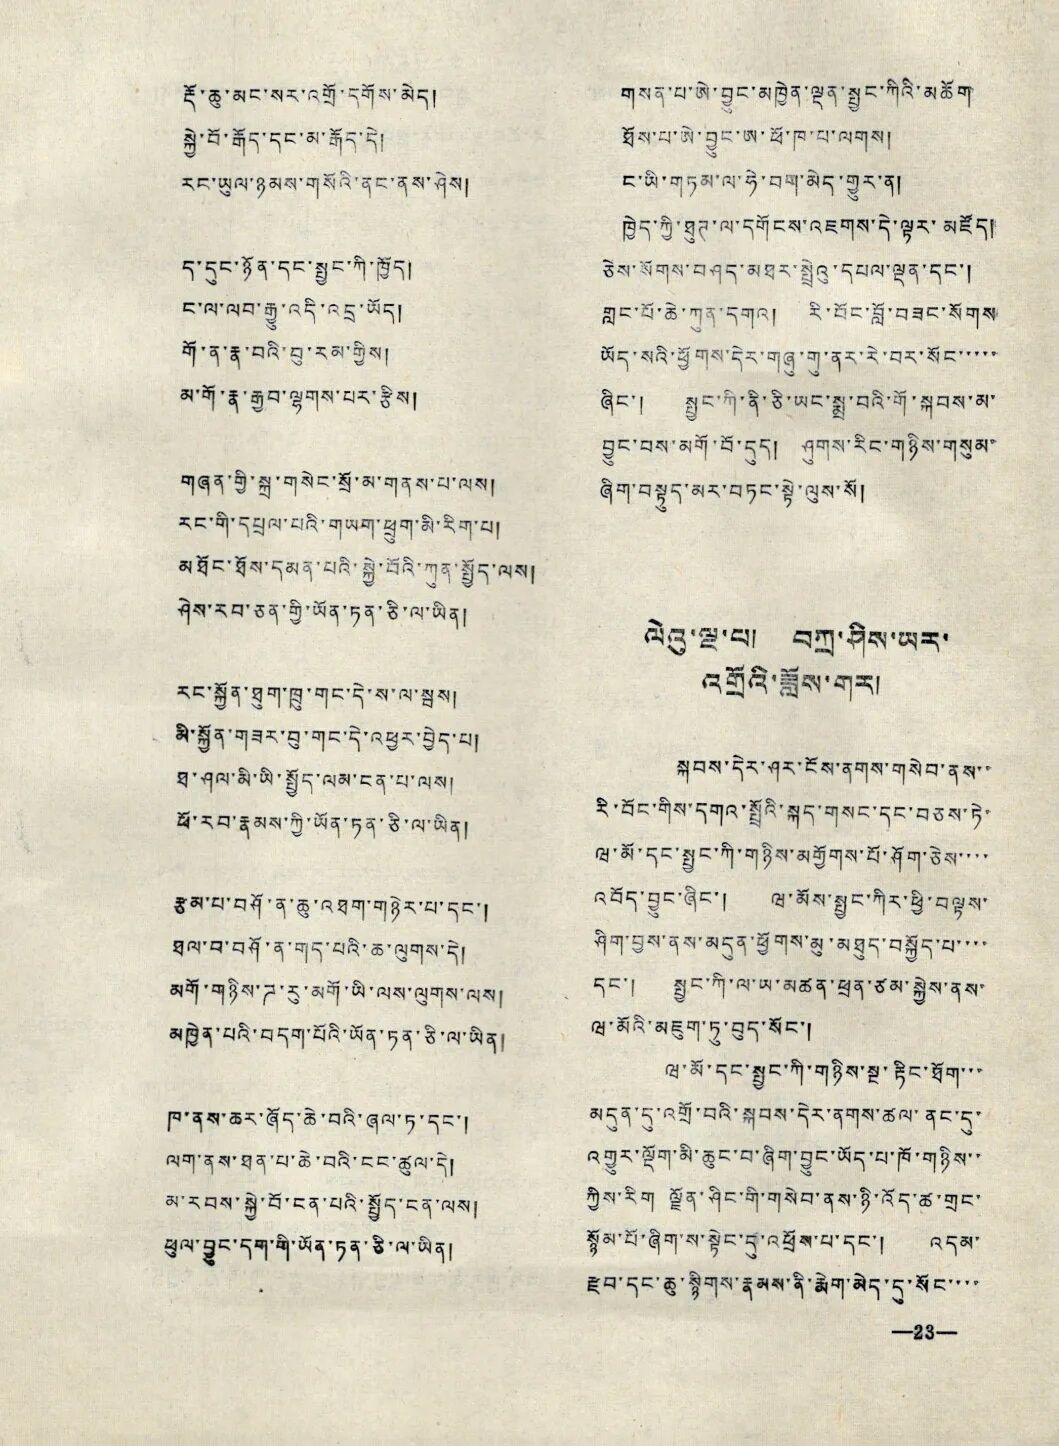 རྡོ་ཆུ་མང་སར་འགྲོ་དགོས་མེད།
སྐྱེ་བོ་རྒོད་དང་མ་རྒོད་དེ།
རང་ཡུལ་ཉམས་གསོའི་ནང་ནས་ཤེས།
ད་དུང་ཉོན་དང་སྤྱང་ཀི་ཁྱོད།
ང་ལ་ལབ་རྒྱུ་འདི་འདྲ་ཡོད།
གོ་ན་རྣ་བའི་བུ་རམ་གྱིས།
མ་གོ་རྣ་རྒྱབ་ལྷགས་པར་རྩིས།
གཞན་གྱི་སྐྲ་གསེང་སྲོ་མ་གནས་པ་ལས།
རང་གི་དཔྲལ་པའི་གཡག་ཕྲུག་མི་རིག་པ།
མཐོང་ཐོས་དམན་པའི་སྐྱེ་བོའི་ཀུན་སྤྱོད་ལས།
ཤེས་རབ་ཅན་གྱི་ཡོན་ཏན་ཅི་ལ་ཡིན།
རང་སྐྱོན་ཐུག་ཁྲུ་གང་དེ་ས་ལ་སྦས།
མི་སྐྱོན་གཟར་བུ་གང་དེ་འཕྱར་བྱེད་པ།
ཐ་ཤལ་མི་ཡི་སྤྱོད་ལམ་ངན་པ་ལས།
ཕོ་རབ་རྣམས་ཀྱི་ཡོན་ཏན་ཅི་ལ་ཡིན།
རྩམ་པ་བཤོ་ན་ཆུ་འཐག་གཉེར་པ་དང་།
ཐལ་བ་བཤོ་ན་གད་པའི་ཆ་ལུགས་དེ།
མགོ་གཉིས་ཌ་རུ་མགོ་ཡི་ལས་ལུགས་ལས།
མཁྱེན་པའི་བདག་པོའི་ཡོན་ཏན་ཅི་ལ་ཡིན།
ཁ་ནས་ཆར་ཞོད་ཆེ་བའི་ཞལ་ཏ་དང་།
ལག་ནས་ཐན་པ་ཆེ་བའི་ངང་ཚུལ་དེ།
མ་རབས་སྐྱེ་བོ་ངན་པའི་སྤྱོད་ངན་ལས།
ཕུལ་བྱུང་དག་གི་ཡོན་ཏན་ཅི་ལ་ཡིན།
གསན་པ་ཨེ་བྱུང་མཁྱེན་ལྡན་སྤྱང་ཀིའི་མཆོག
ཐོས་པ་ཨེ་བྱུང་ཨ་ཕོ་ཁ་པ་ལགས།
ང་ཡི་གཏམ་ལ་ཧེ་བག་མེད་གྱུར་ན།
ཁྱེད་ཀྱི་ཐུཊ་ལ་དགོངས་འཇགས་དེ་ལྟར་མཛོད།
ཅེས་སོགས་བཤད་མཐར་སྤྲེའུ་དཔལ་ལྡན་དང་།
གླང་པོ་ཆེ་ཀུན་དགའ། རི་བོང་བློ་བཟང་སོགས
ཡོད་སའི་ཕྱོགས་དེར་གཞུ་གུ་ནར་རེ་བར་སོང་····
ཞིང་། སྤྱང་ཀི་ནི་ཅི་ཡང་སྨྲ་བའི་གོ་སྐབས་མ་
བྱུང་བས་མགོ་བོ་དུད། ཤུགས་རིང་གཉིས་གསུམ་
ཞིག་བསྟུད་མར་བཏང་སྟེ་ལུས་སོ།
ལེའུ་ལྔ་པ། བཀྲ་ཤིས་ཡར་
འགྲོའི་ཟློས་གར།
སྐབས་དེར་ཤར་ངོས་ནགས་གསེབ་ནས་·
རི་བོང་གིས་དགའ་སྤྲོའི་སྐད་གསང་དང་བཅས་ཏེ་
ཝ་མོ་དང་སྤྱང་ཀི་གཉིས་མགྱོགས་པོ་ཤོག་ཅེས་···
འབོད་བྱུང་ཞིང་། ཝ་མོས་སྤྱང་ཀིར་ཕྱི་བལྟས་
ཤིག་བྱས་ནས་མདུན་ཕྱོགས་མུ་མཐུད་བསྐྱོད་པ་···
དང་། སྤྱང་ཀི་ལ་ཡ་མཚན་ཕྲན་ཙམ་སྐྱེས་ནས་
ཝ་མོའི་མཇུག་ཏུ་བུད་སོང་།
ཝ་མོ་དང་སྤྱང་ཀི་གཉིས་སྔ་རྟིང་ཐོག་··
མདུན་དུ་འགྲོ་བའི་སྐབས་དེར་ནགས་ཚལ་ནང་དུ་
འགྱུར་ལྡོག་མི་ཆུང་བ་ཞིག་བྱུང་ཡོད་པ་ཁོ་གཉིས་·
ཀྱིས་རིག ལྗོན་ཤིང་གི་གསེབ་ནས་ཉི་འོད་ཚ་གྲང་
སྙོམ་པོ་ཞིག་ས་སྟེང་དུ་འཕྲོས་པ་དང་། འདམ་
རྫབ་དང་ཆུ་སྙིགས་རྣམས་ནི་རྨེག་མེད་དུ་སོང་···
—23—